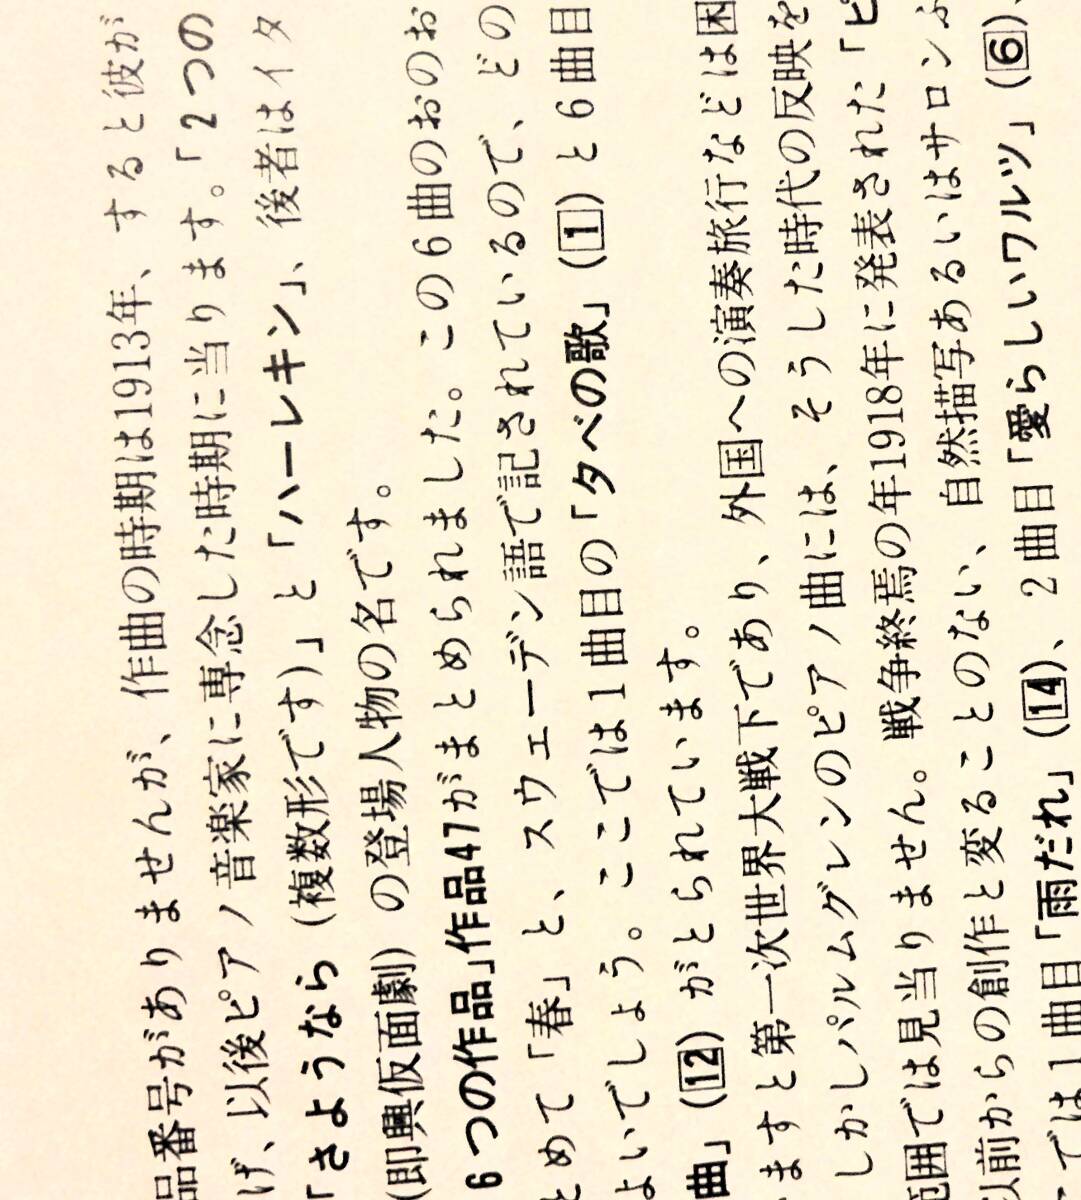 品番号がありませんが、作曲の時期は1913年、すると彼が
げ、以後ピアノ音楽家に専念した時期に当ります。「2つの
「さようなら（複数形です）」と「ハーレキン」、後者はイタ
（即興仮面劇）の登場人物の名です。
6つの作品」作品47がまとめられました。この6曲のおのお
とめて「春」と、スウェーデン語で記されているので、どの
よいでしょう。ここでは1曲目の「夕べの歌」（1）と6曲目
曲」（12）がとられています。
ますと第一次世界大戦下であり、外国への演奏旅行などは困
しかしパルムグレンのピアノ曲には、そうした時代の反映を
範囲では見当りません。戦争終焉の年1918年に発表された「ピ
以前からの創作と変ることのない、自然描写あるいはサロンふ
では1曲目「雨だれ」（14）、2曲目「愛らしいワルツ」（6）、